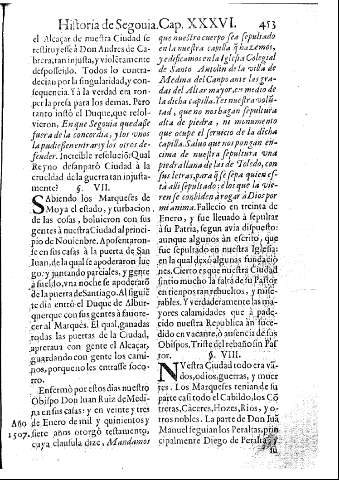 Historia de Segouia. Cap. XXXVI.
453
el Alcaçar de nuestra Ciudad se
restituyesse à Don Andres de Ca-
brera, tan injusta, y violétamente
desposseido. Todos lo contra-
decian por la singularidad, y con-
sequencia. Y à la verdad era ron-
per la presa para los demas. Pero
tanto instò el Duque, que resol-
vieron, En que Segouia quedasse
fuera de la concordia; y los vnos
la pudiessen entrar y los otros de-
fender. Increible resolucion! Qual
Reyno desanparò Ciudad à la
crueldad de la guerra tan injusta-
mente?
§. VII.
Sabiendo los Marqueses de
Moya el estado, y turbacion
de las cosas, boluieron con sus
gentes à nuestra Ciudad al princi-
pio de Nouienbre. Aposentaron-
se en sus casas à la puerta de San
Juan, de la qual se apoderaron lue-
go; y juntando parciales, y gente
à sueldo, vna noche se apoderarõ
de la puerta de Santiago. Al siguiẽ
te dia entrò el Duque de Albur-
querque con sus gentes à fauore-
cer al Marquès. El qual, ganadas
todas las puertas de la Ciudad,
apretaua con gente el Alcaçar,
guardando con gente los cami-
nos, porque no les entrasse socor-
ro.
Enfermò por estos dias nuestro
Obispo Don Juan Ruiz de Medi-
na en sus casas: y en veinte y tres
de Enero de mil y quinientos y
siete años otorgò testamento,
cuya clausula dize, Mandamos
Año
1507.
que nuestro cuerpo sea sepultado
en la nuestra capilla q̃ hazemos,
y edificamos en la Iglesia Colegial
de Santo Antolin de la villa de
Medina del Canpo ante las gra-
das del Altar mayor, en medio de
la dicha capilla. Y es nuestra volũ-
tad, que no nos hagan sepultura
alta de piedra, ni monumento
que ocupe el seruicio de la dicha
capilla. Saluo que nos pongan en-
cima de nuestra sepultura vna
piedra llana de las de Toledo, con
sus letras, para q̃ se sepa quien es-
tà alli sepultado: e los que la vie-
ren se conbiden à rogar à Dios por
mi anima. Falleciò en treinta de
Enero, y fue lleuado à sepultar
à su Patria, segun auia dispuesto:
aunque algunos an escrito, que
fue sepultado en nuestra Iglesia:
en la qual dexò algunas fundacio-
nes. Cierto es que nuestra Ciudad
sintio mucho la falta de su Pastor
en tienpos tan rebueltos, y mise-
rables. Y verdaderamente las ma-
yores calamidades que à pade-
cido nuestra Republica an suce-
dido en vacante, ò ausencia de sus
Obispos, Triste del rebaño sin Pas-
tor.
§. VIII.
Nuestra Ciudad todo era va-
dos, odios, guerras, y muer-
tes. Los Marqueses tenian de su
parte casi todo el Cabildo, los Cõ-
treras, Càceres, Hozes, Rios, y o-
tros nobles. La parte de Don Juã
Manuel seguian los Peraltas, prin-
cipalmente Diego de Peralta,
su